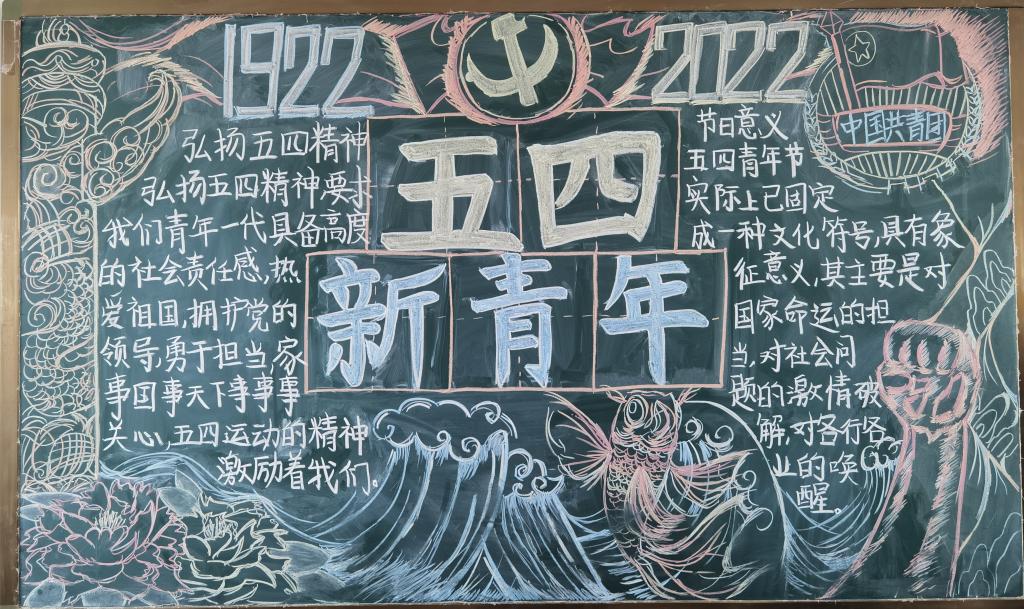 1922
2022
中国共青团
五四
新青年
弘扬五四精神
弘扬五四精神要求
我们青年一代具备高度
的社会责任感,热
爱祖国,拥护党的
领导,勇于担当,家
事国事天下事事事
关心,五四运动的精神
激励着我们。
节日意义
五四青年节
实际上已固定
成一种文化符号,具有象
征意义,其主要是对
国家命运的担
当,对社会问
题的激情破
解,对各行各
业的唤
醒。